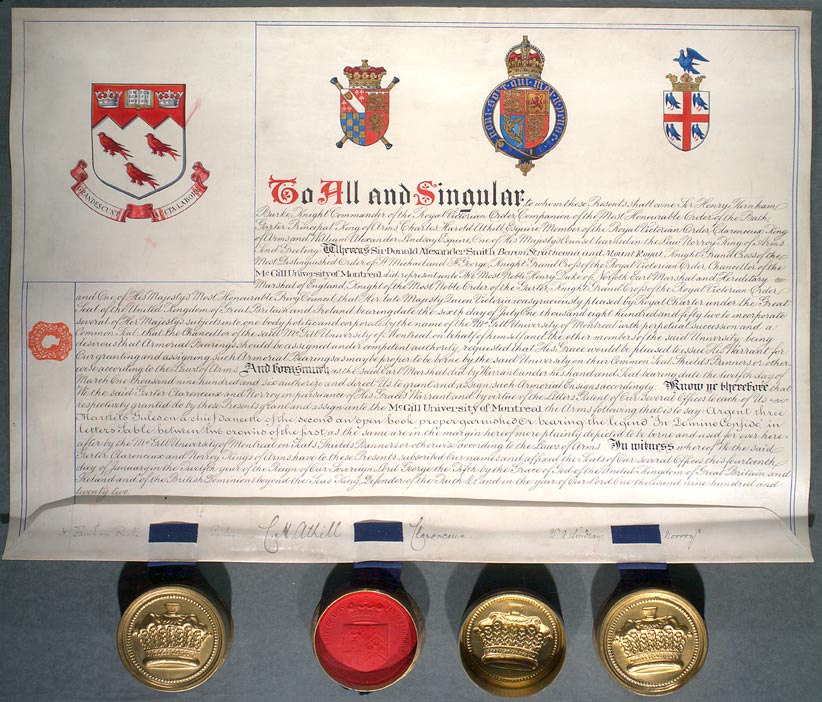 GRANDESCUNT AUCTA LABORE
HONI SOIT QUI MAL Y PENSE
To All and Singular to whom these Presents shall come Sir Henry Farnham
Burke Knight Commander of the Royal Victorian Order Companion of the Most Honourable Order of the Bath
Garter Principal King of Arms Charles Harold Athill Esquire Member of the Royal Victorian Order Clarenceux King
of Arms and William Alexander Lindsay Esquire One of His Majesty's Counsel learned in the Law Norroy King of Arms
Send Greeting Whereas Sir Donald Alexander Smith Baron Strathcona and Mount Royal Knight Grand Cross of the
Most Distinguished Order of St Michael and St George Knight Grand Cross of the Royal Victorian Order Chancellor of the
McGill University of Montreal did represent unto The Most Noble Henry Duke of Norfolk Earl Marshal and Hereditary
Marshal of England Knight of the Most Noble Order of the Garter Knight Grand Cross of the Royal Victorian Order
and One of His Majesty's Most Honourable Privy Council that Her late Majesty Queen Victoria was graciously pleased by Royal Charter under the Great
Seal of the United Kingdom of Great Britain and Ireland bearing date the sixth day of July One thousand eight hundred and fifty two to incorporate
several of Her Majesty's subjects into one body politic and corporate by the name of the McGill University of Montreal with perpetual succession and a
Common Seal That the Chancellor of the said McGill University of Montreal on behalf of himself and the other members of the said University being
desirous that Armorial Bearings should be assigned under competent authority requested that His Grace would be pleased to issue His Warrant for
Our granting and assigning such Armorial Bearings as may be proper to be borne by the said University on their Common Seal Shields Banners or other-
wise according to the Laws of Arms And forasmuch as the said Earl Marshal did by Warrant under his hand and Seal bearing date the twelfth day of
March One thousand nine hundred and six authorize and direct Us to grant and assign such Armorial Ensigns accordingly Know ye therefore that
We the said Garter Clarenceux and Norroy in pursuance of His Grace's Warrant and by virtue of the Letters Patent of Our several Offices to each of Us
respectively granted do by these Presents grant and assign unto the McGill University of Montreal the Arms following that is to say Argent three
Martlets Gules on a Chief dancette of the second an open book proper garnished Or bearing the legend In Domino Confido in
letters Sable between two crowns of the first as the same are in the margin hereof more plainly depicted to be borne and used for ever here-
after by the McGill University of Montreal on Seals Shields Banners or otherwise according to the Laws of Arms In witness whereof We the said
Garter Clarenceux and Norroy Kings of Arms have to these Presents subscribed Our names and affixed the Seals of Our several Offices this fourteenth
day of January in the Twelfth year of the Reign of Our Sovereign Lord George the Fifth by the Grace of God of the United Kingdom of Great Britain and
Ireland and of the British Dominions beyond the Seas King Defender of the Faith &c and in the year of Our Lord One thousand nine hundred and
twenty two.
H Farnham Burke Garter C. H. Athill Clarenceux. W. A. Lindsay Norroy